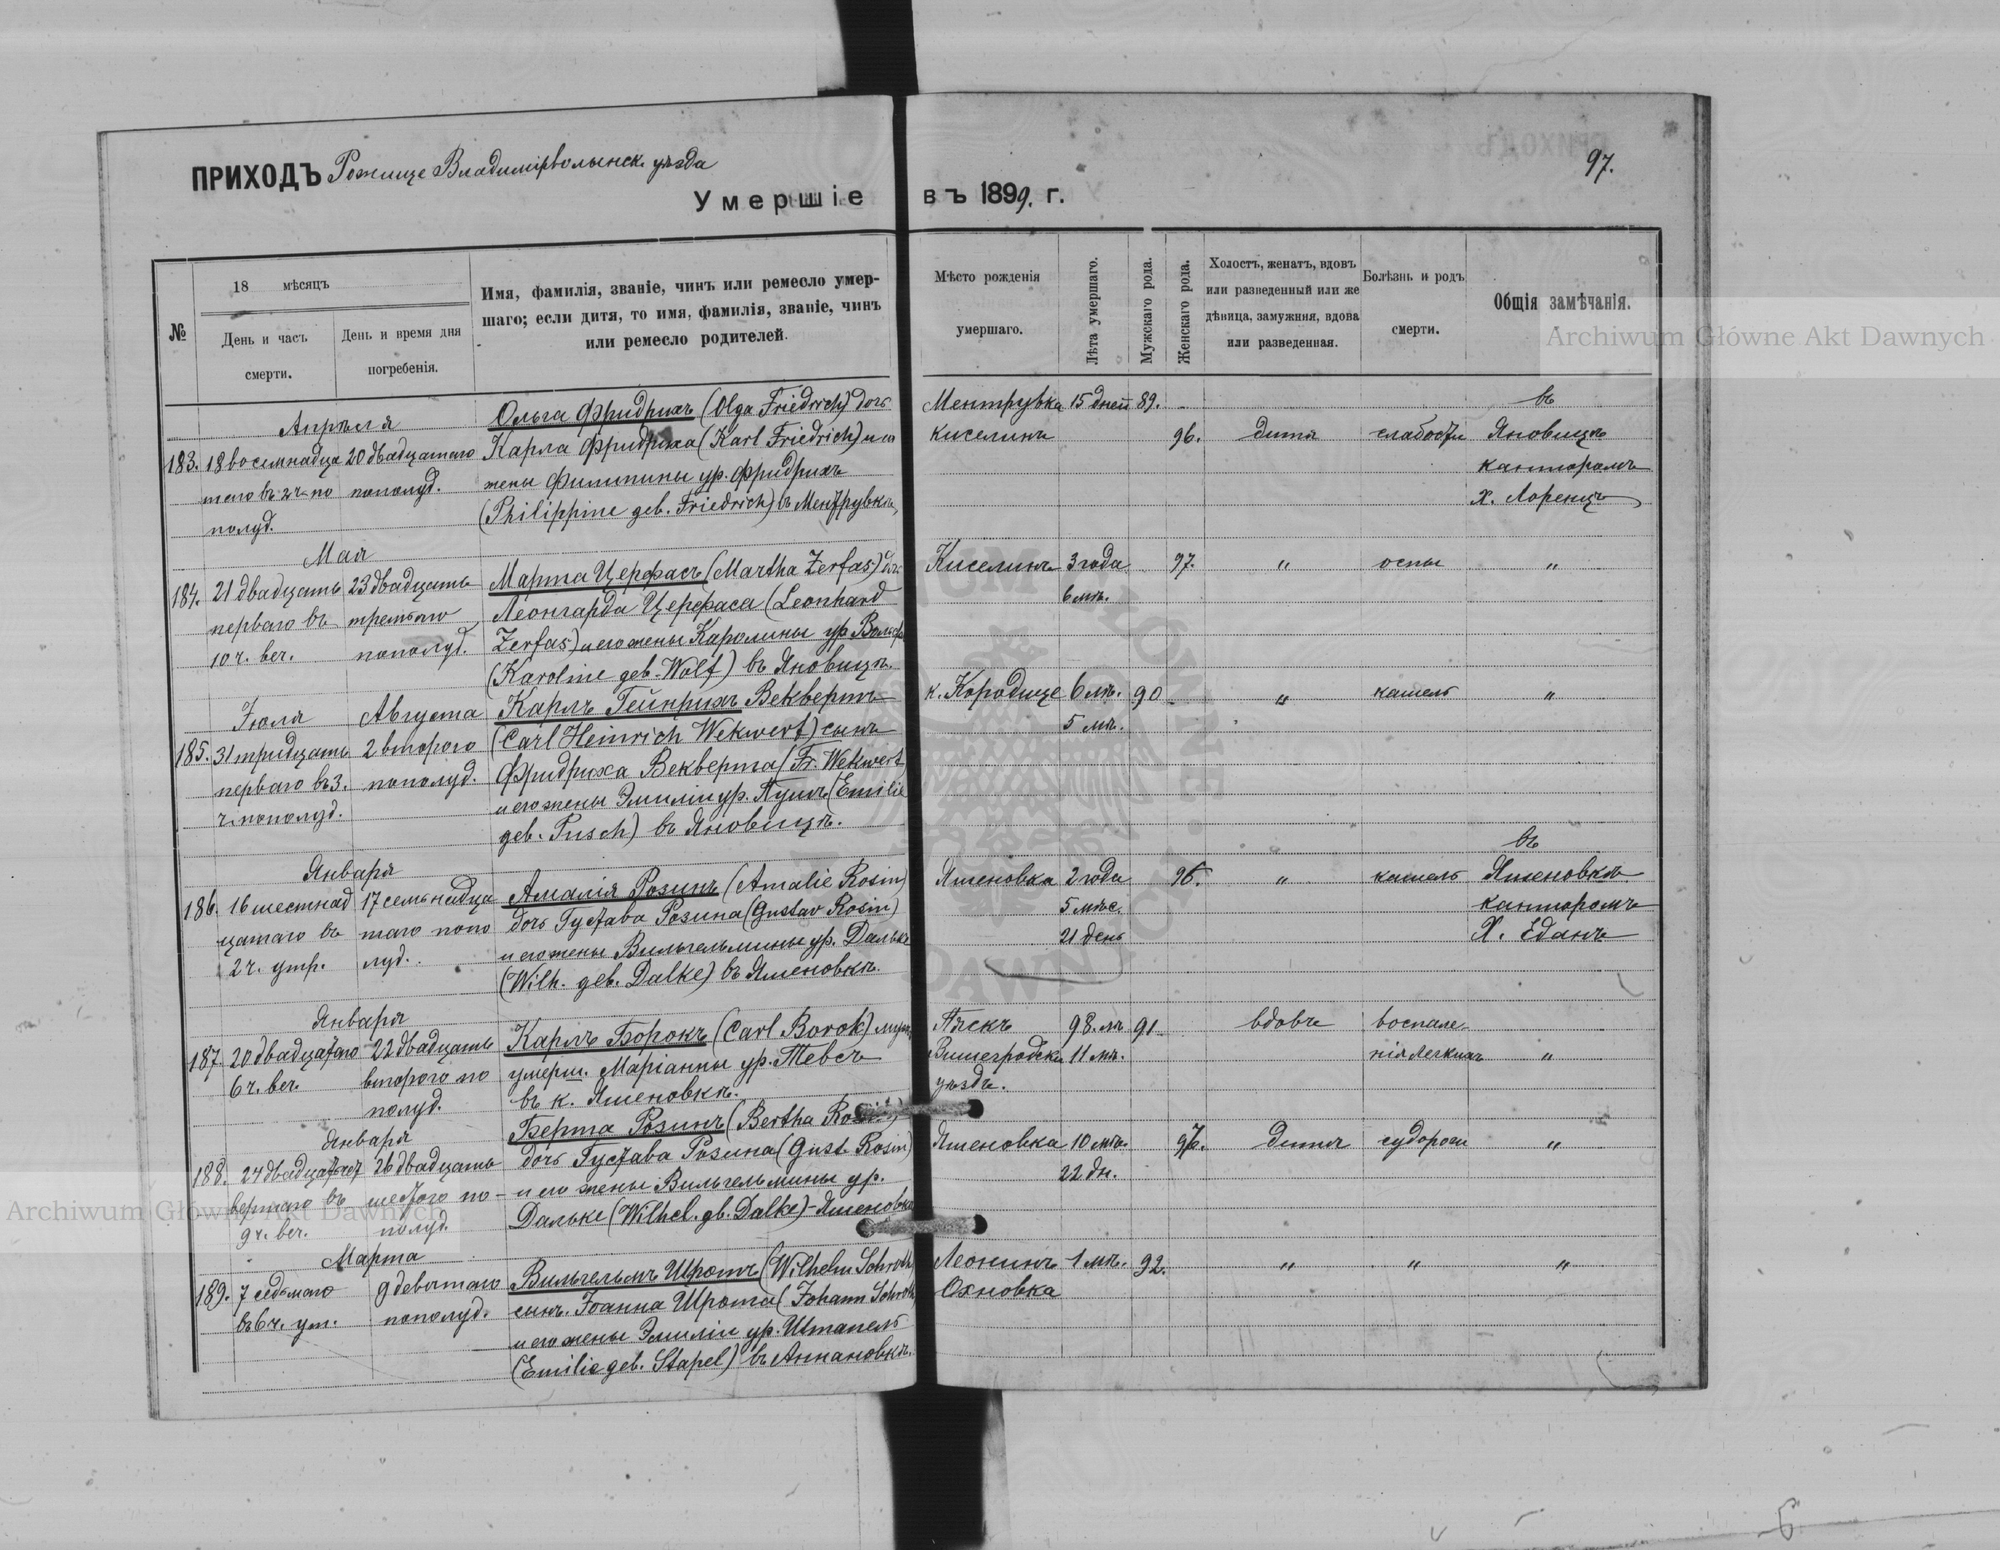 97.
ПРИХОДЪ Рожище Владимірволынск. уѣзда
Умершіе въ 1899. г.
№
18 мѣсяцъ
День и часъ смерти.
День и время дня погребенія.
Имя, фамилія, званіе, чинъ или ремесло умер-
шаго; если дитя, то имя, фамилія, званіе, чинъ
или ремесло родителей.
Мѣсто рожденія
умершаго.
Лѣта умершаго.
Мужскаго рода.
Женскаго рода.
Холостъ, женатъ, вдовъ
или разведенный или же
дѣвица, замужняя, вдова
или разведенная.
Болѣзнь и родъ
смерти.
Общія замѣчанія.
Archiwum Główne Akt Dawnych
Апрѣля Ольга Фридрихъ (Olga Friedrich) дочь Ментрувка 15 дней 89. въ
183. 18 восемнадца 20 двадцатаго Карла Фридриха (Karl Friedrich) и его Киселинъ 96. дитя слабости Яновицѣ
таго въ 2 ч. по пополуд. жены Филипины ур. Фридрихъ канторомъ
полуд. (Philippine geb. Friedrich) въ Ментрувкѣ, Х. Лоренцъ
Мая
184. 21 двадцать 23 двадцать Марта Церфасъ (Martha Zerfas) дочь Киселинъ 3 года 97. " оспы "
перваго въ третьяго Леонгарда Церфаса (Leonhard 6 мѣ.
10 ч. веч. пополуд. Zerfas) и его жены Каролины ур. Вольф
(Karoline geb. Wolf) въ Яновицѣ.
Іюля Августа Карлъ Гейнрихъ Веквертъ к. Кородище 6 лѣ. 90 " кашель "
185. 31 тридцать 2 второго (Carl Heinrich Wekwert) сынъ 5 мѣ.
перваго въ 3. пополуд. Фридриха Векверта (Fr. Wekwert
ч. пополуд. и его жены Эмиліи ур. Пушъ (Emilie
geb. Pusch) въ Яновицѣ.
Января въ
186. 16 шестнад 17 семьнадца Амалія Розинъ (Amalie Rosin) Яшеновка 2 года 96. " кашель Яшеновкѣ
цатаго въ таго попо дочь Густава Розина (Gustav Rosin) 5 мѣс. канторомъ
2 ч. утр. луд. и его жены Вильгельмины ур. Дальке 21 день Х. Еданъ
(Wilh. geb. Dalke) въ Яшеновкѣ.
Января
187. 20 двадцатаго 22 двадцать Карлъ Борокъ (Carl Borok) мужъ Пяскъ 98. лѣ 91 вдовъ воспале-
6 ч. веч. второго по умерш. Маріанны ур. Тевсъ Вишегродска 11 мѣ. нія легкихъ "
полуд. въ к. Яшеновкѣ. уѣздъ.
Января Берта Розинъ (Bertha Rosin)
188. 24 двадцать чет 26 двадцать дочь Густава Розина (Gust. Rosin) Яшеновка 10 мѣ. дитя судороги "
вертаго въ шестого по- и его жены Вильгельмины ур. 22 дн.
9 ч. веч. полуд. Дальке (Wilhel. gb. Dalke) - Яшеновкѣ
Archiwum Główne Akt Dawnych
Марта
189. 7 седьмаго 9 девятаго Вильгельмъ Шротъ (Wilhelm Schroth) Леонинъ 1 мѣ. 92. " " "
въ 6 ч. ут. пополуд. сынъ Іоанна Шрота (Johann Schroth) Охновка
и его жены Эмиліи ур. Штапель
(Emilie geb. Stapel) въ Аннановкѣ.